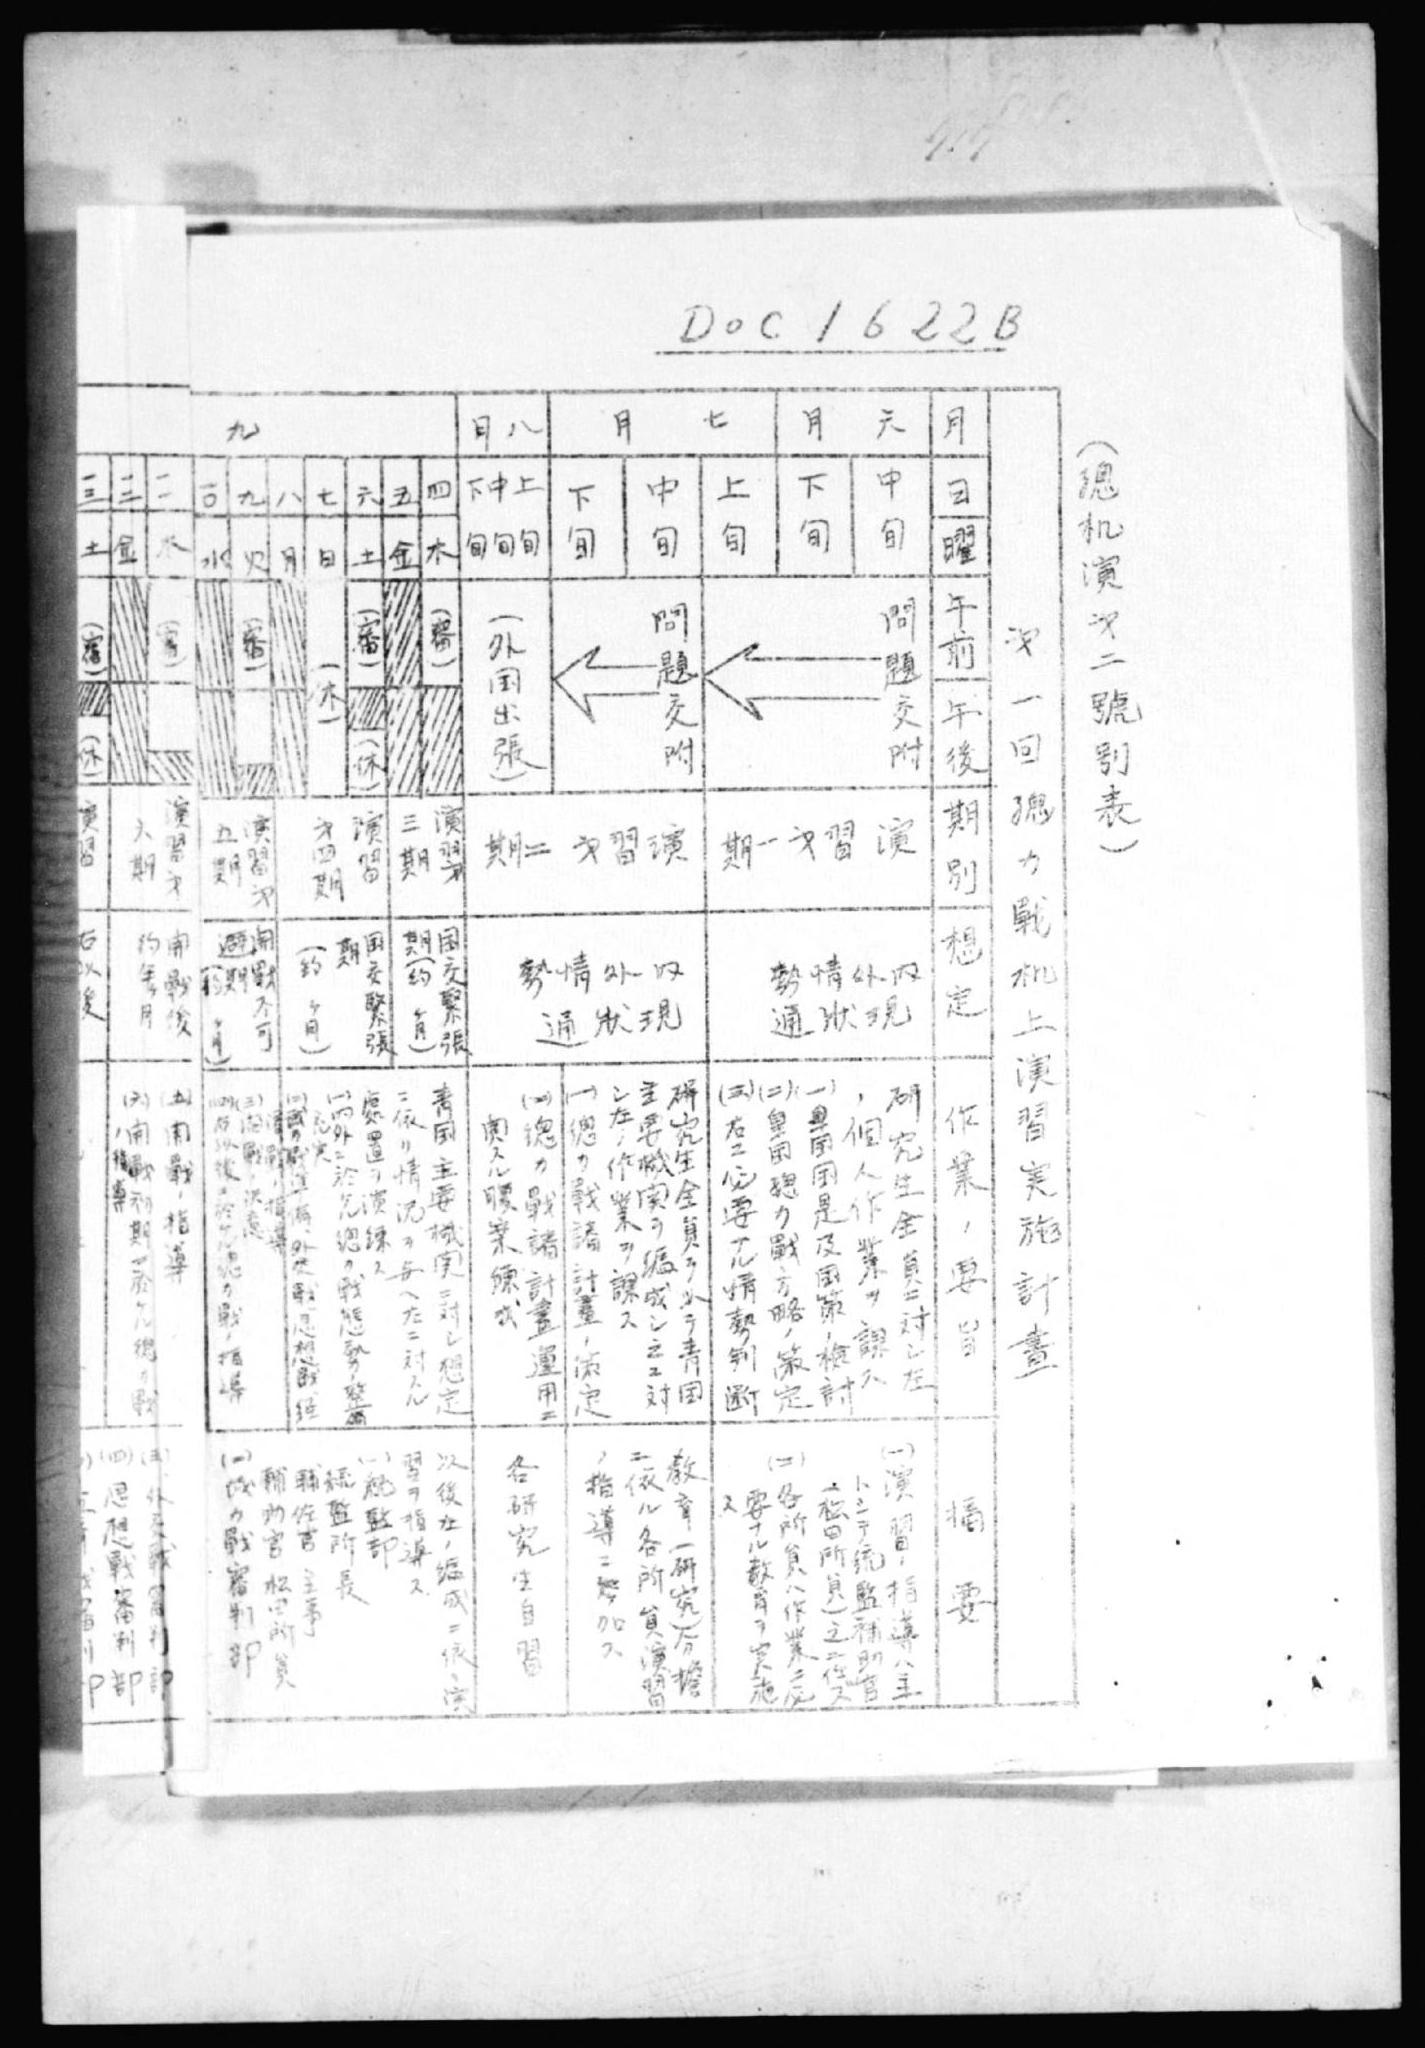 DOC 1622B
(總机演才二號別表)
才一回總力戰机上演習実施計畫
月
日
曜
午前
午後
期別
想定
作業ノ要旨
摘要
六月
中旬
下旬
七月
上旬
中旬
下旬
問題交附
問題交附
演習才一期
内外情勢
現状通
研究生全員ニ対シ左
ノ個人作業ヲ課ス
(一)皇国国是及国策ノ検討
(二)皇国總力戰方略ノ策定
(三)右ニ必要ナル情勢判断
(一)演習ノ指導ハ主
トシテ統監補助官
(松田所員)之ニ任ス
(二)各所員ハ作業ニ必
要ナル教育ヲ実施
ス
八月
上旬
中旬
下旬
(外国出張)
演習才二期
内外情勢
現状通
研究生全員ヲ以テ青国
主要機関ヲ編成シ之ニ対
シ左ノ作業ヲ課ス
(一)總力戰諸計畫ノ策定
(二)總力戰諸計畫運用ニ
関スル腹案練成
教育(研究)分擔
ニ依ル各所員演習
ノ指導ニ参加ス
各研究生自習
九
四 木
五 金
六 土
七 日
八 月
九 火
一〇 水
一一 木
一二 金
一三 土
(審)
(審)
(休)
(休)
(審)
(審)
(休)
演習才
三期
国交緊張
期(約 ヶ月)
演習
才四期
国交緊張
期
(約 ヶ月)
演習才
五期
開戰不可
避期
(約 ヶ月)
演習才
六期
開戰後
約 年 ヶ月
演習
右以後
青国主要機関ニ対シ想定
ニ依リ情況ヲ与ヘ左ニ対スル
處置ヲ演練ス
(一)内外ニ於ケル總力戰態勢ノ整備
充実
(三)開戰ノ決意
(四)右以後ニ於ケル總力戰ノ指導
(五)開戰ノ指導
(六)開戰初期ニ於ケル總力戰
ノ指導
以後左ノ編成ニ依リ演
習ヲ指導ス
(一)統監部
統監 所長
輔佐官 主事
輔助官 松田所員
(二)武力戰審判部
(三)外交戰審判部
(四)思想戰審判部